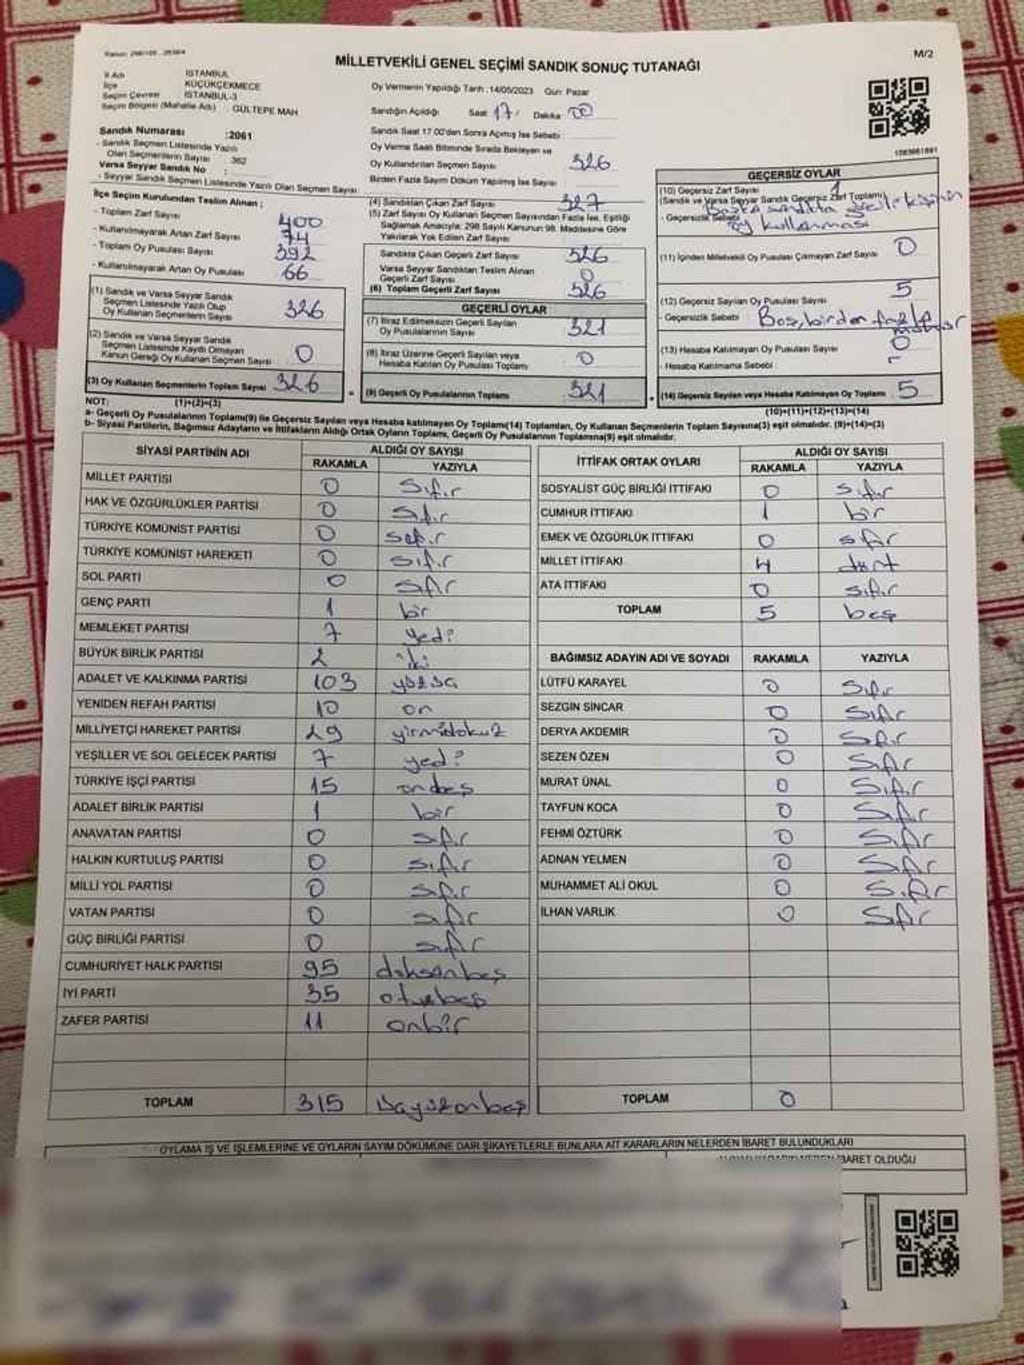 M/2
MİLLETVEKİLİ GENEL SEÇİMİ SANDIK SONUÇ TUTANAĞI
İl Adı İSTANBUL
İlçe KÜÇÜKÇEKMECE
Seçim Çevresi İSTANBUL-3
Seçim Bölgesi (Mahalle Adı) : GÜLTEPE MAH
Sandık Numarası :2061
- Sandık Seçmen Listesinde Yazılı
Olan Seçmenlerin Sayısı : 362
Varsa Seyyar Sandık No :
- Seyyar Sandık Seçmen Listesinde Yazılı Olan Seçmen Sayısı :
Oy Vermenin Yapıldığı Tarih : 14/05/2023 Gün: Pazar
Sandığın Açıldığı Saat 17 Dakika 00
Sandık Saat 17.00'den Sonra Açılmış İse Sebebi
Oy Verme Saati Bitiminde Sırada Bekleyen ve
Oy Kullandırılan Seçmen Sayısı 326
Birden Fazla Sayım Döküm Yapılmış İse Sayısı
1383961891
İlçe Seçim Kurulundan Teslim Alınan ;
- Toplam Zarf Sayısı 400
- Kullanılmayarak Artan Zarf Sayısı 74
- Toplam Oy Pusulası Sayısı 392
- Kullanılmayarak Artan Oy Pusulası 66
(1) Sandık ve Varsa Seyyar Sandık
Seçmen Listesinde Yazılı Olup
Oy Kullanan Seçmenlerin Sayısı 326
(2) Sandık ve Varsa Seyyar Sandık
Seçmen Listesinde Kayıtlı Olmayan
Kanun Gereği Oy Kullanan Seçmen Sayısı 0
(3) Oy Kullanan Seçmenlerin Toplam Sayısı 326
(4) Sandıktan Çıkan Zarf Sayısı 327
(5) Zarf Sayısı Oy Kullanan Seçmen Sayısından Fazla İse, Eşitliği
Sağlamak Amacıyla; 298 Sayılı Kanunun 98. Maddesine Göre
Yakılarak Yok Edilen Zarf Sayısı
Sandıkta Çıkan Geçerli Zarf Sayısı 326
Varsa Seyyar Sandıktan Teslim Alınan
Geçerli Zarf Sayısı 0
(6) Toplam Geçerli Zarf Sayısı 326
GEÇERLİ OYLAR
(7) İtiraz Edilmeksizin Geçerli Sayılan
Oy Pusulalarının Sayısı 321
(8) İtiraz Üzerine Geçerli Sayılan veya
Hesaba Katılan Oy Pusulası Toplamı 0
(9) Geçerli Oy Pusulalarının Toplamı 321
GEÇERSİZ OYLAR
(10) Geçersiz Zarf Sayısı 1
(Sandık ve Varsa Seyyar Sandık Geçersiz Zarf Toplamı)
- Geçersizlik Sebebi Başka sandıkta
oy kullanması
(11) İçinden Milletvekili Oy Pusulası Çıkmayan Zarf Sayısı 0
(12) Geçersiz Sayılan Oy Pusulası Sayısı 5
- Geçersizlik Sebebi : Boş, birden fazla
mühür
(13) Hesaba Katılmayan Oy Pusulası Sayısı 0
- Hesaba Katılmama Sebebi :
(14) Geçersiz Sayılan veya Hesaba Katılmayan Oy Toplamı 5
NOT: (1)+(2)=(3)
(10)+(11)+(12)+(13)=(14)
a- Geçerli Oy Pusulalarının Toplamı(9) ile Geçersiz Sayılan veya Hesaba katılmayan Oy Toplamı(14) Toplamları, Oy Kullanan Seçmenlerin Toplam Sayısına(3) eşit olmalıdır. (9)+(14)=(3)
b- Siyasi Partilerin, Bağımsız Adayların ve İttifakların Aldığı Ortak Oyların Toplamı, Geçerli Oy Pusulalarının Toplamına(9) eşit olmalıdır.
SİYASİ PARTİNİN ADI ALDIĞI OY SAYISI
RAKAMLA YAZIYLA
MİLLET PARTİSİ 0 Sıfır
HAK VE ÖZGÜRLÜKLER PARTİSİ 0 Sıfır
TÜRKİYE KOMÜNİST PARTİSİ 0 sıfır
TÜRKİYE KOMÜNİST HAREKETİ 0 sıfır
SOL PARTİ 0 sıfır
GENÇ PARTİ 1 bir
MEMLEKET PARTİSİ 7 yedi
BÜYÜK BİRLİK PARTİSİ 2 iki
ADALET VE KALKINMA PARTİSİ 103 yüzüç
YENİDEN REFAH PARTİSİ 10 on
MİLLİYETÇİ HAREKET PARTİSİ 29 yirmidokuz
YEŞİLLER VE SOL GELECEK PARTİSİ 7 yedi
TÜRKİYE İŞÇİ PARTİSİ 15 onbeş
ADALET BİRLİK PARTİSİ 1 bir
ANAVATAN PARTİSİ 0 sıfır
HALKIN KURTULUŞ PARTİSİ 0 sıfır
MİLLİ YOL PARTİSİ 0 sıfır
VATAN PARTİSİ 0 sıfır
GÜÇ BİRLİĞİ PARTİSİ 0 sıfır
CUMHURİYET HALK PARTİSİ 95 doksanbeş
İYİ PARTİ 35 otuzbeş
ZAFER PARTİSİ 11 onbir
TOPLAM 315 üçyüzonbeş
İTTİFAK ORTAK OYLARI ALDIĞI OY SAYISI
RAKAMLA YAZIYLA
SOSYALİST GÜÇ BİRLİĞİ İTTİFAKI 0 sıfır
CUMHUR İTTİFAKI 1 bir
EMEK VE ÖZGÜRLÜK İTTİFAKI 0 sıfır
MİLLET İTTİFAKI 4 dört
ATA İTTİFAKI 0 sıfır
TOPLAM 5 beş
BAĞIMSIZ ADAYIN ADI VE SOYADI RAKAMLA YAZIYLA
LÜTFÜ KARAYEL 0 Sıfır
SEZGİN SİNCAR 0 Sıfır
DERYA AKDEMİR 0 Sıfır
SEZEN ÖZEN 0 Sıfır
MURAT ÜNAL 0 Sıfır
TAYFUN KOCA 0 Sıfır
FEHMİ ÖZTÜRK 0 Sıfır
ADNAN YELMEN 0 Sıfır
MUHAMMET ALİ OKUL 0 Sıfır
İLHAN VARLIK 0 Sıfır
TOPLAM 0
OYLAMA İŞ VE İŞLEMLERİNE VE OYLARIN SAYIM DÖKÜMÜNE DAİR ŞİKAYETLERLE BUNLARA AİT KARARLARIN NELERDEN İBARET BULUNDUKLARI
İBARET OLDUĞU